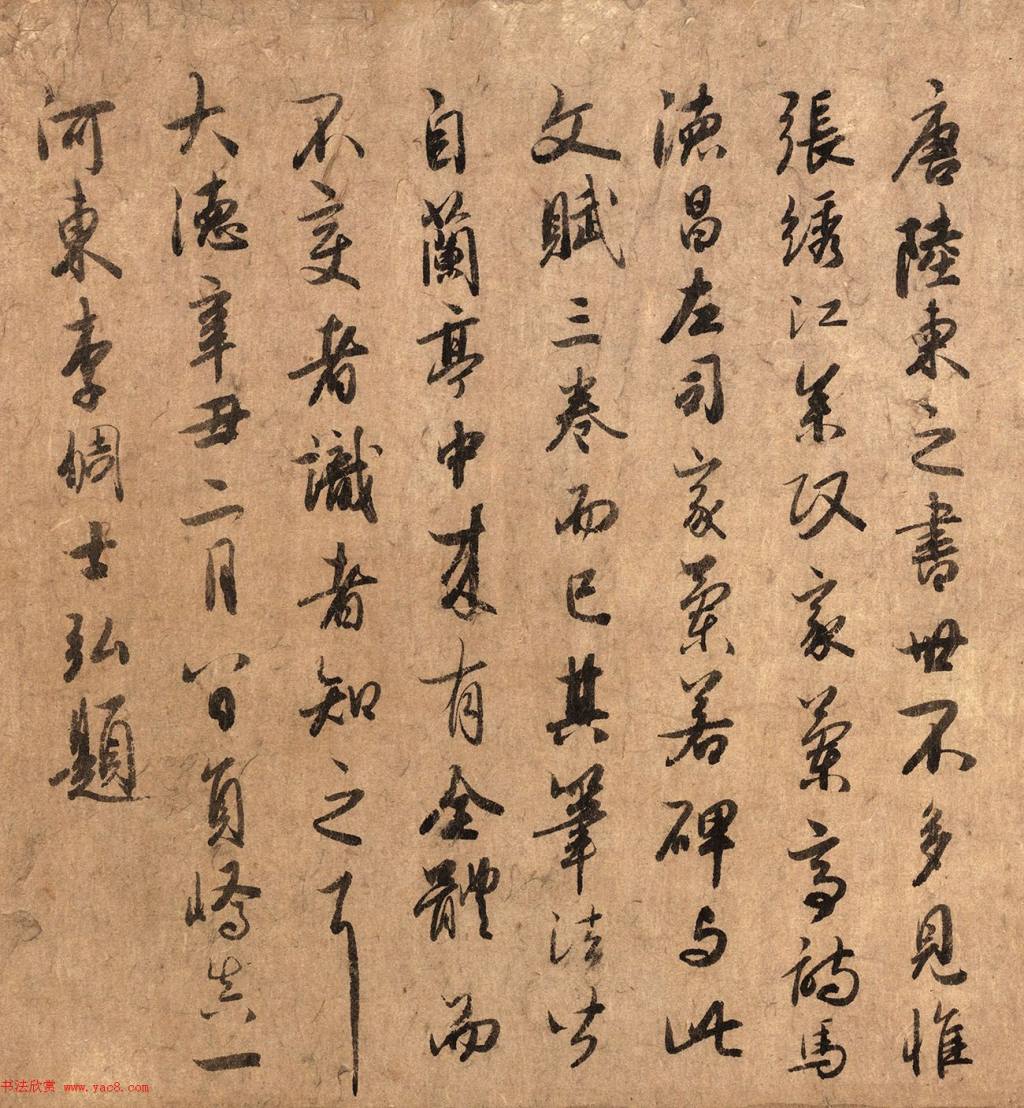 唐陸柬之書世不多見惟
張綉江參政家蘭亭詩馬
德昌左司家蘭若碑与此
文賦三卷而已其筆法皆
自蘭亭中来有全體而
不變者識者知之耳
大德辛丑二月八日員嶠真一
河東李倜士弘題
书法欣赏 www.yac8.com